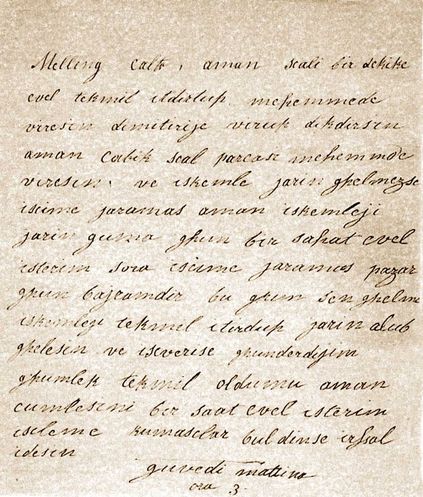 Melling Calfa, aman seali bir dekike
evel tekmil itdirlup mehemmede
viresen dimitirije virup dikdirsen
aman Cabik seal parcase mehemmede
viresen ve iskemle jarin ghelmezse
iscime jaramas aman iskemleji
jarin guma ghun bir sahat evel
isterim sora iscime jaramas pazar
ghun bajramdir bu ghun sen ghelme
iskemlegi tekmil itirdup jarin alub
ghelesen ve iseverise ghunderdighim
ghumlek tekmil oldumu aman
cumlesini bir saat evel isterim
iscleme kumasclar buldinse irssal
idesen
guvedi mattina
ora 3.